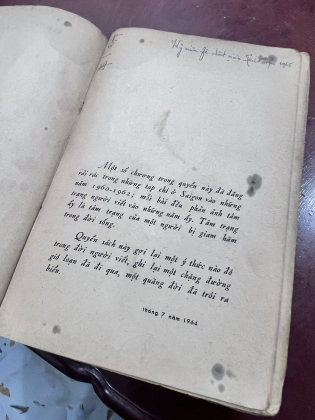 Một số chương trong quyển này đã đăng
rải rác trong những tạp chí ở Saigon vào những
năm 1960-1962; mỗi bài đều phản ảnh tâm
trạng người viết vào những năm ấy. Tâm trạng
ấy là tâm trạng của một người bị giam hãm
trong đời sống.
Quyển sách này gợi lại một ý thức nào đó
trong đời người viết, ghi lại một chặng đường
gió loạn đã đi qua, một quãng đời đã trôi ra
biển.
tháng 7 năm 1964